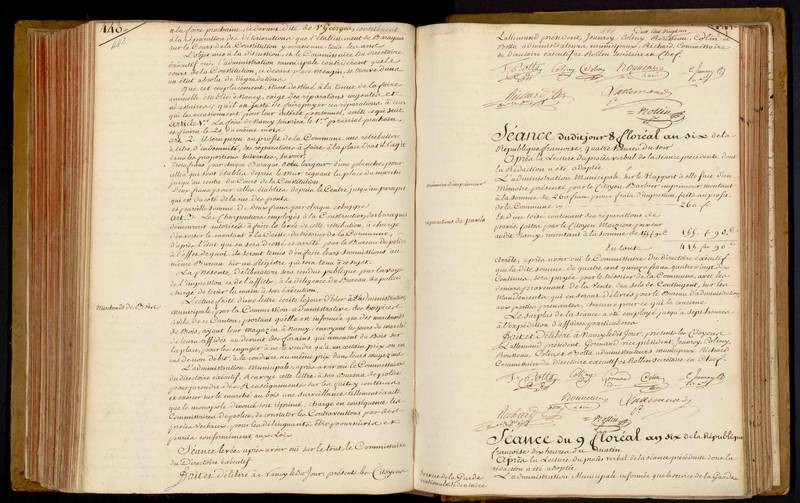 448
à la foire prochaine,
à la réparation des détériorations que l'établissement de Baraques
sur le Cours de la Constitution y occasionne tous les ans
L'objet mis à la discution, et le Commissaire du directoire
exécutif ouï, l'administration municipale considérant que le
cours de la Constitution, ci devant place Mengin, se trouve dans
un état absolu de dégradation
Que cet emplacement, étant destiné à la tenue de la foire
annuelle établie à Nancy, exige des réparations urgentes et
nécessaires; qu'il est juste de faire payer ces réparations à ceux
qui les occasionnent pour leur intérêt personnel, arrête ce qui suit
Article 1er La foire de Nancy s'ouvrira le 1er prairial prochain
et finira le 20 du même mois
Art. 2. Il sera perçu au profit de la Commune une rétribution
à titre d'indemnité, des réparations à faire à la place dont il s'agit
dans les proportions suivantes, savoir,
Trois francs par chaque Baraque de la largeur d'une planche, pour
celles qui sont établies depuis le mur régnant la place du marché
jusqu'au centre du Cours de la Constitution,
Deux francs pour celles établies depuis le Centre jusqu'au parapet
qui est du coté de la rue des ponts
et pareille somme de deux francs par chaque échoppe
Art. Les Charpentiers employés à la Construction des baraques
demeurent autorisés à faire la levée de cette rétribution, à charge
d'en verser le montant à la Caisse du trésorier de la Commune,
d'après l'état qui en sera dressé et arrêté par le Bureau de police
à l'effet de quoi ils seront tenus d'en faire leurs soumissions au
même Bureau sur un Registre qui sera tenu à ce sujet.
La présente Délibération sera rendue publique par la voye
de l'impression et de l'affiche, à la diligence du Bureau de police
chargé de tenir la main à son exécution.
Marchands de Bois
Lecture faite d'une lettre écrite le jour d'hier à l'administration
municipale par la Commission administrative des hospices
civils de ce Canton, portant qu'elle est informée que des marchands
de Bois, ayant leur magazin à Nancy, envoyent les jours de marché
de leurs affidés au devant des forains qui amènent du Bois sur
la place, pour les engager à ne le vendre qu'à un certain prix, ou en
cas de non debit, à le conduire au même prix dans leurs magazins
L'administration Municipale, après avoir ouï le Commissaire
du directoire exécutif, Renvoye cette lettre à son Bureau de police
pour prendre des Renseignements sur les faits y contenus
et exercer sur le marché au bois une surveillance tellement exacte
que le monopole dénoncé soit réprimé, charge en conséquence les
Commissaires de police, de constater les Contraventions par des
procès verbaux, pour les délinquants être poursuivis et
punis conformément aux Loix.
Séance levée après avoir ouï sur le tout, le Commissaire
du Directoire exécutif
Fait et délibéré à Nancy les dits Jour, présents les Citoyens
Lallemand président, Journey, Coliny, Rousseau, Colin et
Botta administrateurs municipaux, Richard, Commissaire
du directoire exécutif et Rollin secrétaire en Chef.
Botta Coliny Colin Rousseau
Richard Lallemand
Rollin
Séance du dit jour 8 floréal an six de la
République française, quatre heures du soir
Après la Lecture du procès verbal de la séance précédente dont
la Rédaction a été adoptée
mémoire d'imprimeur
L'administration Municipale, sur le Rapport à elle fait d'un
Mémoire présenté par le Citoyen Barbier imprimeur, montant
à la somme de 260 francs pour frais d'impression faits au profit
de la Commune 260 fcs
réparations de pavés
Et d'un toisé contenant des réparations de
pavés faites par le Citoyen Mezière paveur
audit Nancy, montant à la somme de
Au total
Arrête, après avoir ouï le Commissaire du Directoire exécutif
que la dite somme de quatre cent
sera payée par le trésorier de la Commune, avec les
deniers provenant de la Vente des sols de Contingent, sur les
Mandements qui en seront délivrés par le Bureau d'administration
aux parties prenantes, chacune pour ce qui la concerne
Le surplus de la séance a été employé jusqu'à sept heures
à l'expédition d'affaires particulières
Fait et Délibéré à Nancy les dits Jour, présents les Citoyens
Lallemand président, Gormand vice président, Journey, Coliny
Rousseau, Colin et Botta administrateurs municipaux, Richard
Commissaire du directoire exécutif et Rollin secrétaire en Chef
Botta Coliny Colin
Rousseau Lallemand
Richard Rollin
Séance du 9 floréal an six de la République
française dix heures du matin
Après la Lecture du procès verbal de la séance précédente dont la
rédaction a été adoptée
service de la Garde
nationale sédentaire
L'administration Municipale informée que le service de la Garde